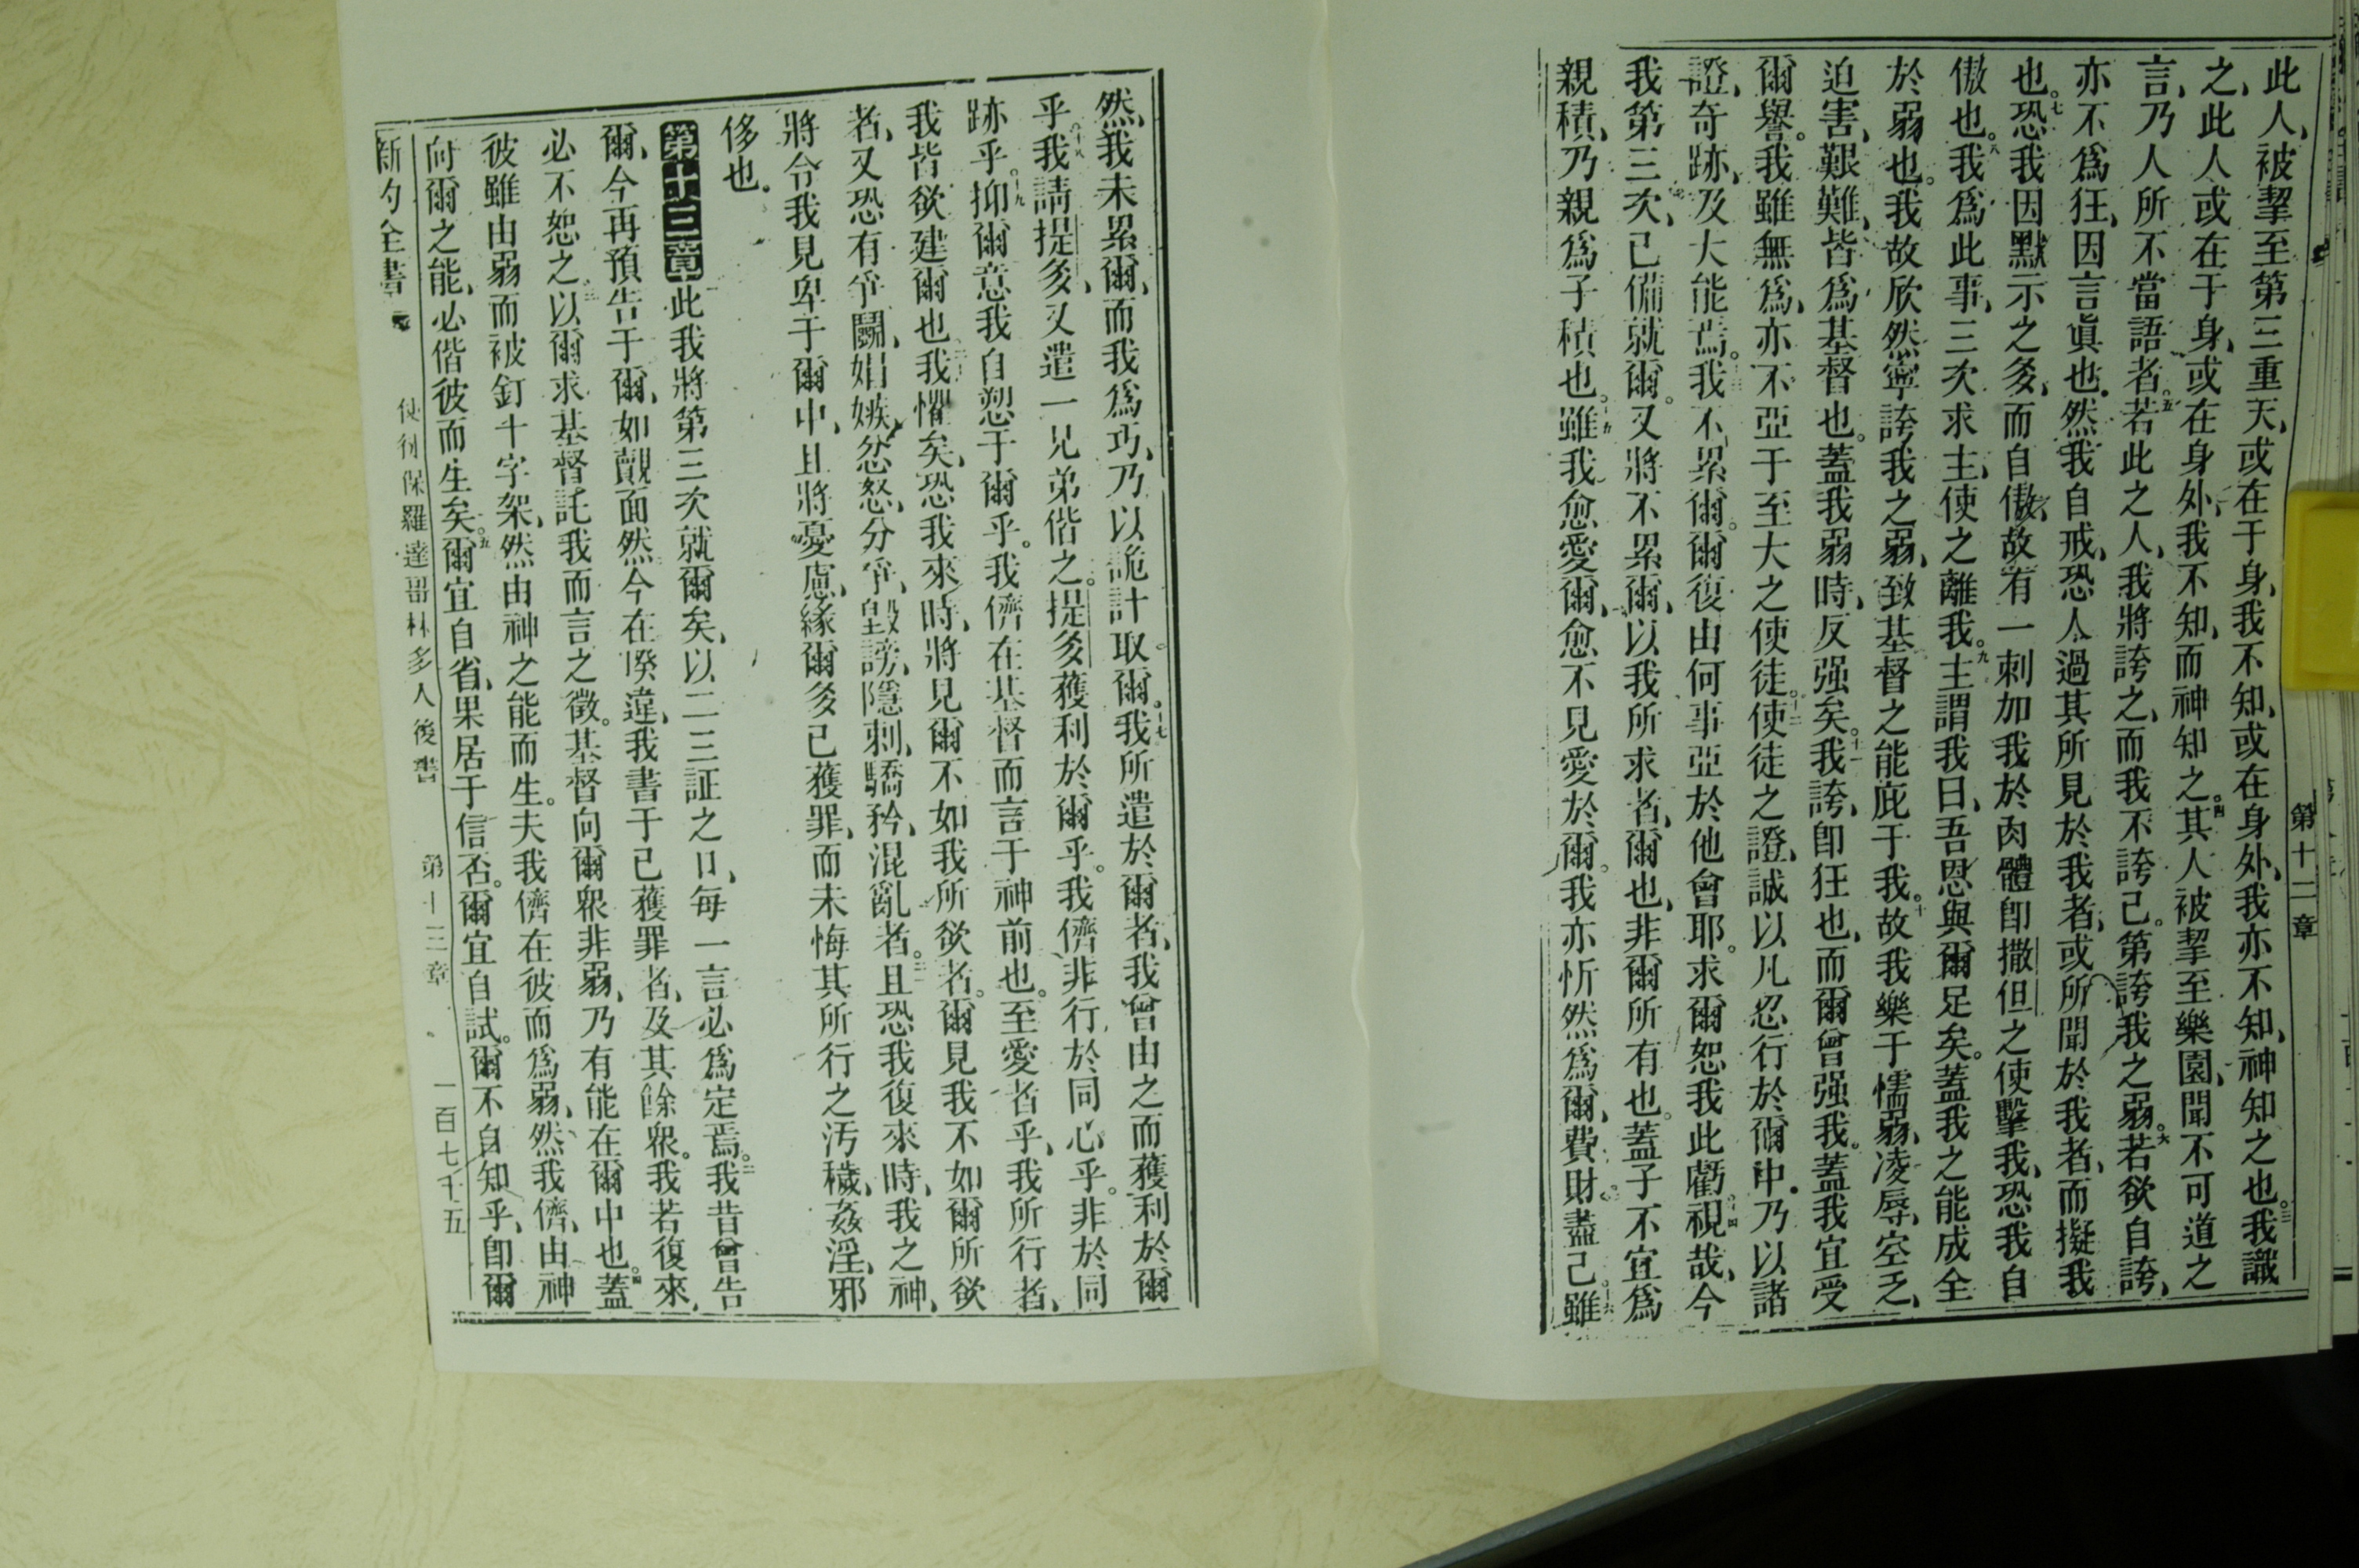 第十二章
此人、被挈至第三重天、或在于身、我不知、或在身外、我亦不知、神知之也。三我識
之、此人或在于身、或在身外、我不知、而神知之。四其人被挈至樂園、聞不可道之
言、乃人所不當語者。五若此之人、我將誇之、而我不誇己。第誇我之弱。六若欲自誇、
亦不爲狂、因言眞也。然我自戒、恐人過其所見於我者、或所聞於我者、而擬我
也。七恐我因默示之多、而自傲、故有一刺加我於肉體卽撒但之使擊我、恐我自
傲也。八我爲此事、三次求主、使之離我。九主謂我曰、吾恩與爾足矣。蓋我之能成全
於弱也。我故欣然寧誇我之弱、致基督之能庇于我。十故我樂于懦弱、凌辱、空乏、
迫害、艱難、皆爲基督也。蓋我弱時、反强矣。十一我誇、卽狂也、而爾曾强我。蓋我宜受
爾譽。我雖無爲、亦不亞于至大之使徒。十二使徒之證、誠以凡忍行於爾中。乃以諸
證、奇跡、及大能焉。十三我不累爾。爾復由何事亞於他會耶。求爾恕我此虧。十四視哉、今
我第三次、已備就爾。又將不累爾、以我所求者、爾也、非爾所有也。蓋子不宜爲
親積、乃親爲子積也。十五雖我愈愛爾、愈不見愛於爾。我亦忻然爲爾、費財。盡己。十六雖
然、我未累爾、而我爲巧、乃以詭計取爾。十七我所遣於爾者、我曾由之而獲利於爾
乎。十八我請提多、又遣一兄弟偕之。提多獲利於爾乎。我儕非行於同心乎。非於同
跡乎。十九抑爾意我自恕于爾乎。我儕在基督而言于神前也。至愛者乎、我所行者、
我皆欲建爾也。二十我懼矣、恐我來時、將見爾不如我所欲者。爾見我不如爾所欲
者、又恐有爭鬭、娼嫉、忿怒、分爭、毀謗、隱刺、驕矜、混亂者。二一且恐我復來時、我之神、
將令我見卑于爾中、且將憂慮、緣爾多已獲罪、而未悔其所行之汚穢、姦淫、邪
侈也。
第十三章此我將第三次就爾矣、以二三証之口、每一言必爲定焉。二我昔曾告
爾、今再預告于爾、如覿面然、今在暌違、我書于已獲罪者、及其餘衆。我若復來、
必不恕之。三以爾求基督託我而言之徵。基督向爾衆非弱、乃有能在爾中也。四蓋
彼雖由弱而被釘十字架、然由神之能而生。夫我儕在彼而爲弱、然我儕、由神
向爾之能、必偕彼而生矣。五爾宜自省、果居于信否。爾宜自試。爾不自知乎、卽爾
新約全書 使徒保羅達哥林多人後書 第十三章 一百七十五